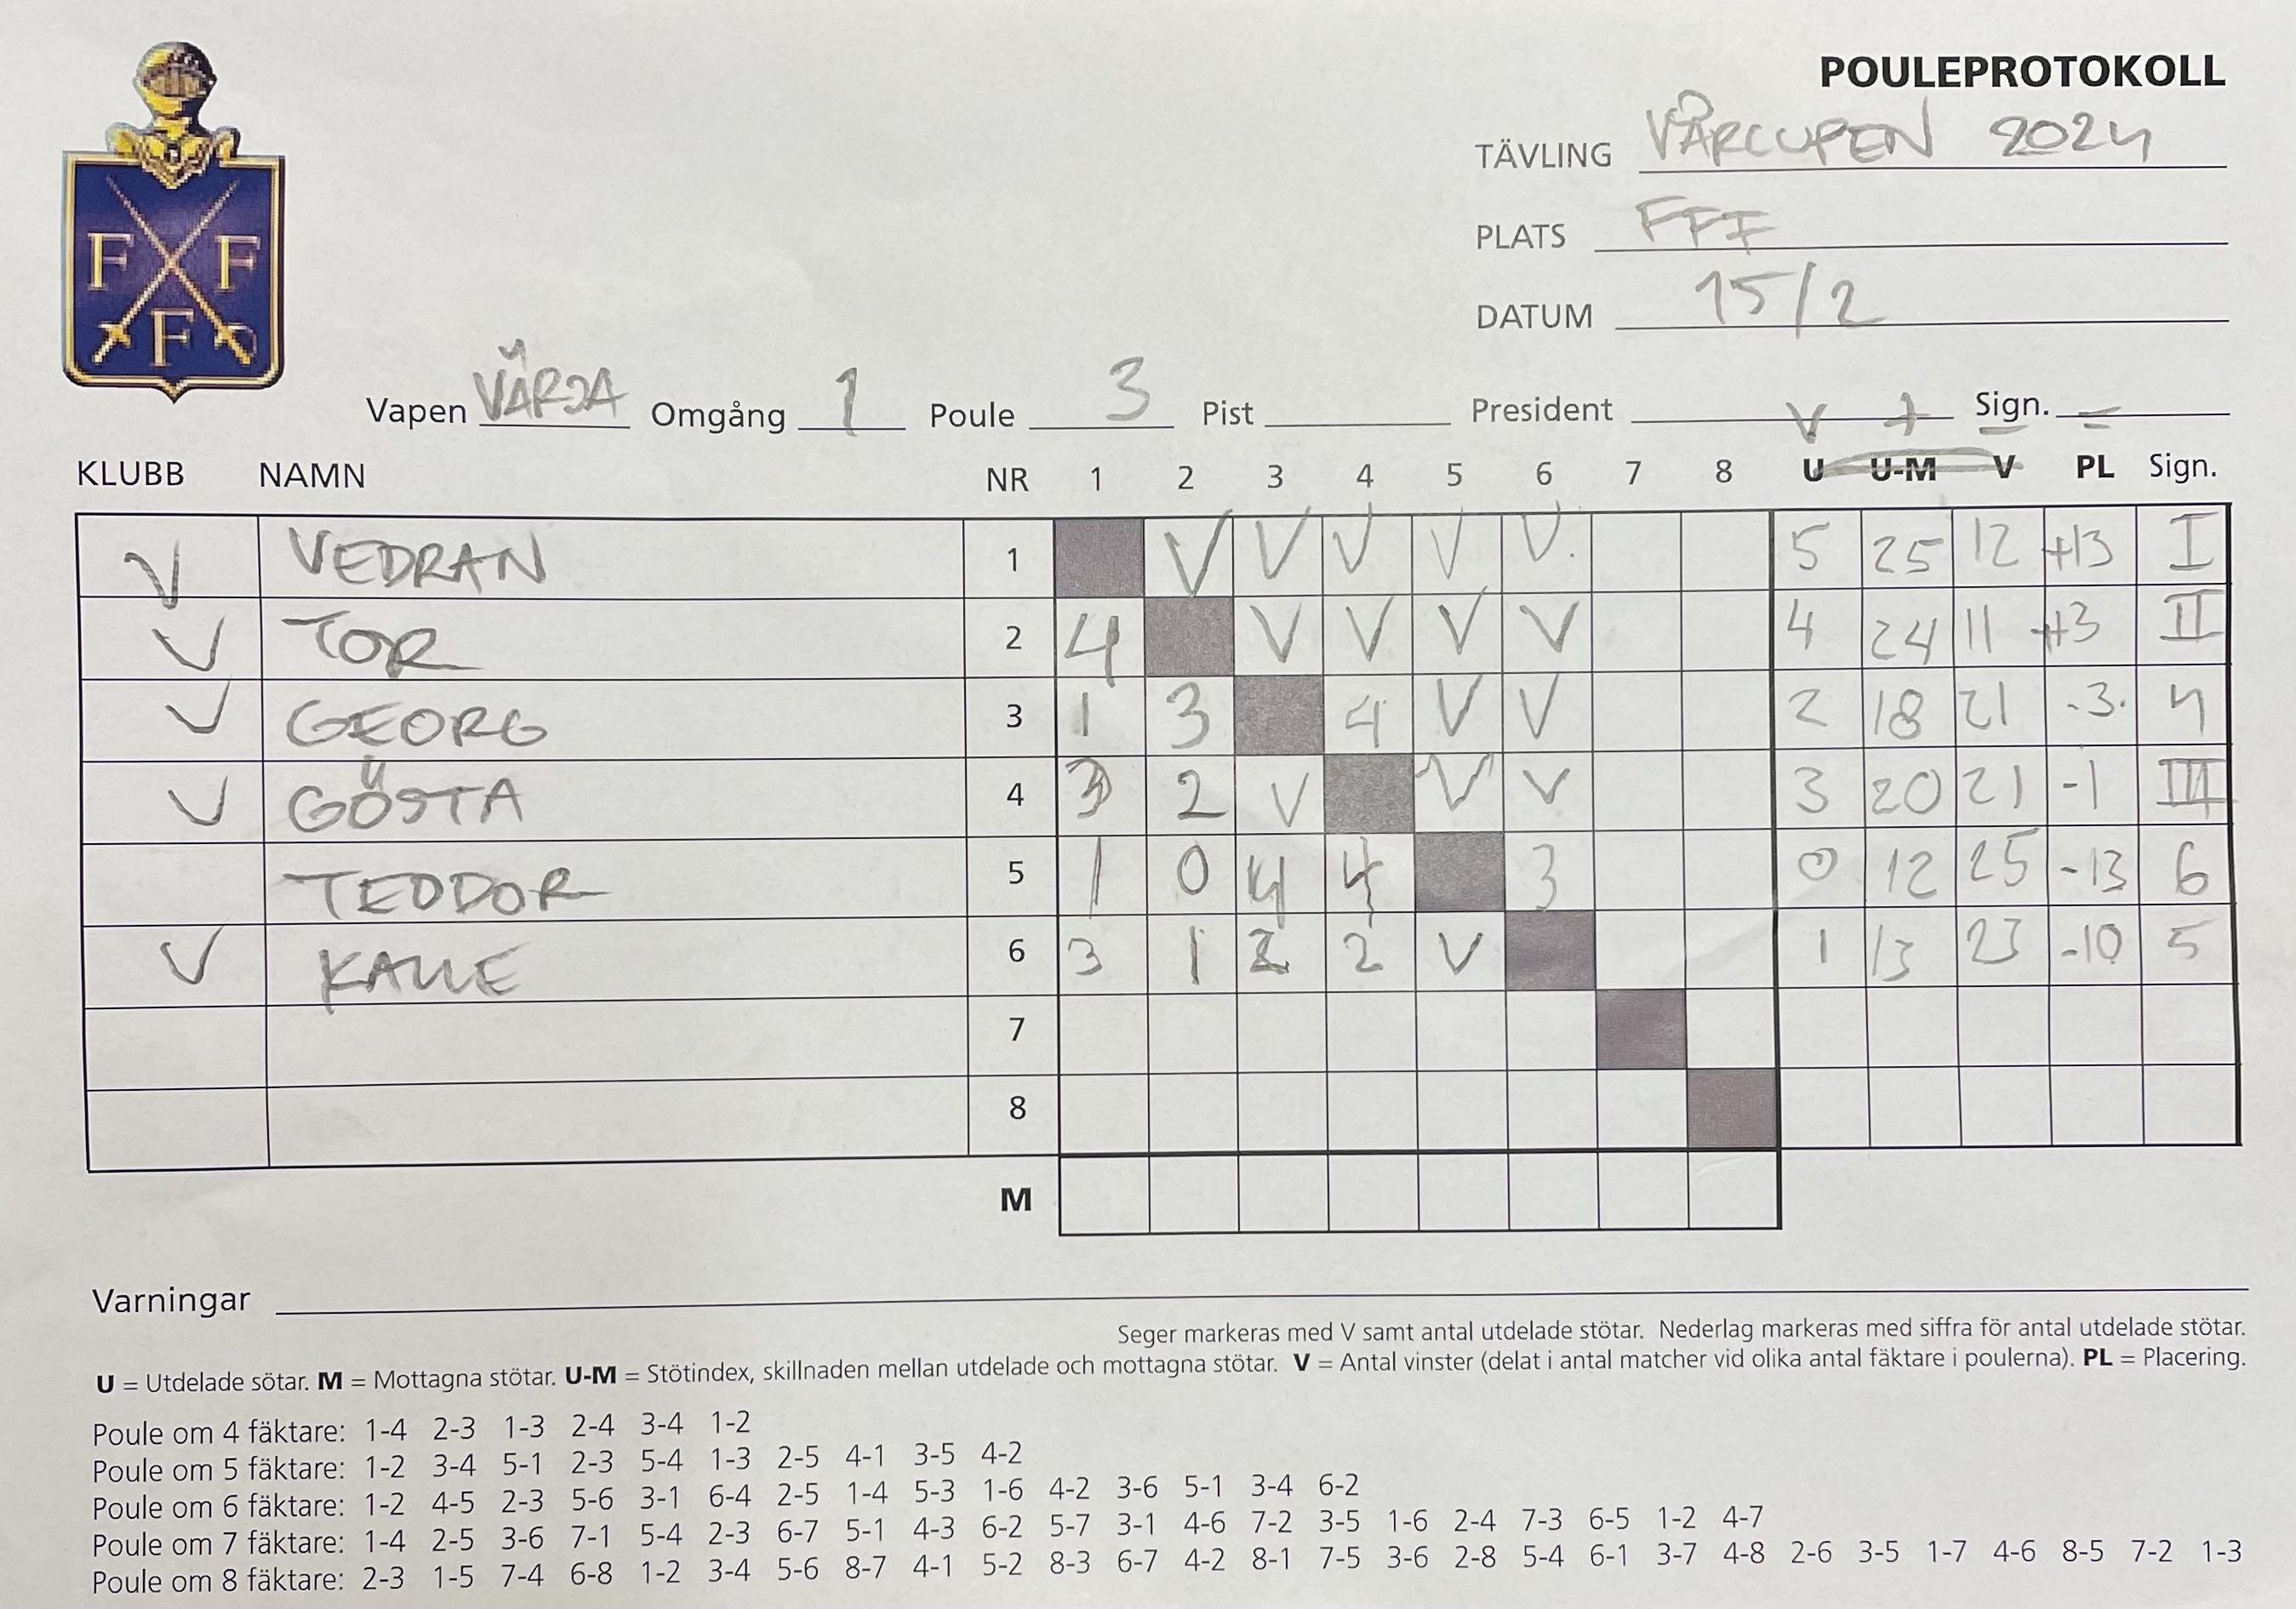 POULEPROTOKOLL
TÄVLING VÅRCUPEN 2024
PLATS FFF
DATUM 15/2
F F F
Vapen VÄRJA Omgång 1 Poule 3 Pist President Sign.
V + - =
KLUBB NAMN NR 1 2 3 4 5 6 7 8 U U-M V PL Sign.
V VEDRAN 1 V V V V V 5 25 12 +13 I
V TOR 2 4 V V V V 4 24 11 +13 II
V GEORG 3 1 3 4 V V 2 18 21 -3 4
V GÖSTA 4 3 2 V V V 3 20 21 -1 III
TEODOR 5 1 0 4 4 3 0 12 25 -13 6
V KALLE 6 3 1 2 2 V 1 13 23 -10 5
7
8
M
Varningar
Seger markeras med V samt antal utdelade stötar. Nederlag markeras med siffra för antal utdelade stötar.
U = Utdelade sötar. M = Mottagna stötar. U-M = Stötindex, skillnaden mellan utdelade och mottagna stötar. V = Antal vinster (delat i antal matcher vid olika antal fäktare i poulerna). PL = Placering.
Poule om 4 fäktare: 1-4 2-3 1-3 2-4 3-4 1-2
Poule om 5 fäktare: 1-2 3-4 5-1 2-3 5-4 1-3 2-5 4-1 3-5 4-2
Poule om 6 fäktare: 1-2 4-5 2-3 5-6 3-1 6-4 2-5 1-4 5-3 1-6 4-2 3-6 5-1 3-4 6-2
Poule om 7 fäktare: 1-4 2-5 3-6 7-1 5-4 2-3 6-7 5-1 4-3 6-2 5-7 3-1 4-6 7-2 3-5 1-6 2-4 7-3 6-5 1-2 4-7
Poule om 8 fäktare: 2-3 1-5 7-4 6-8 1-2 3-4 5-6 8-7 4-1 5-2 8-3 6-7 4-2 8-1 7-5 3-6 2-8 5-4 6-1 3-7 4-8 2-6 3-5 1-7 4-6 8-5 7-2 1-3